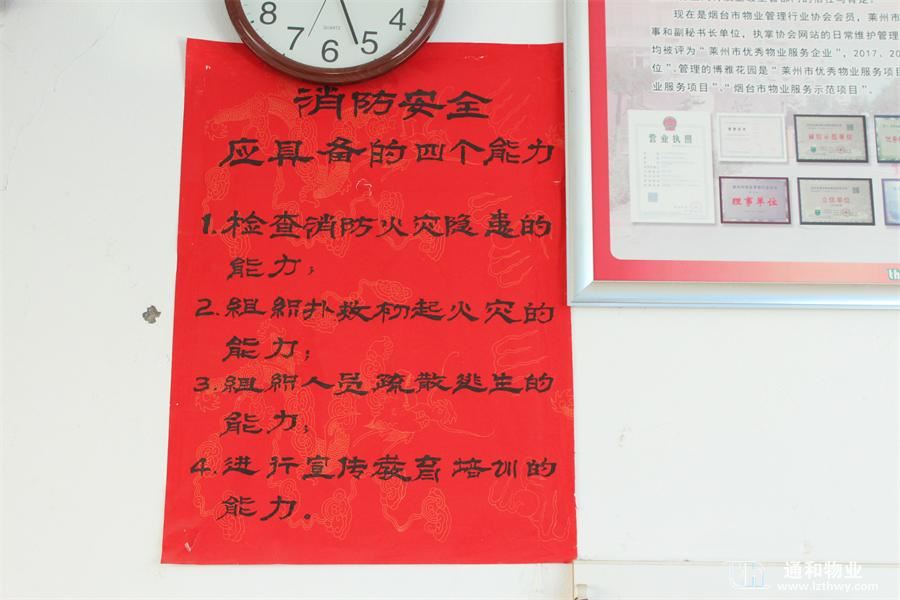 8
7
6
5
4
QUARTZ
消防安全
应具备的四个能力
1.检查消防火灾隐患的
能力；
2.组织扑救初起火灾的
能力；
3.组织人员疏散逃生的
能力；
4.进行宣传教育培训的
能力。
现在是烟台市物业管理行业协会会员，莱州市
事和副秘书长单位，执掌协会网站的日常维护管理
均被评为“莱州市优秀物业服务企业”，2017、20
位”.管理的博雅花园是“莱州市优秀物业服务项目
业服务项目”.“烟台市物业服务示范项目”。
营业执照
诚信示范单位
理事单位
立信单位
th
通和物业
www.lzthwy.com